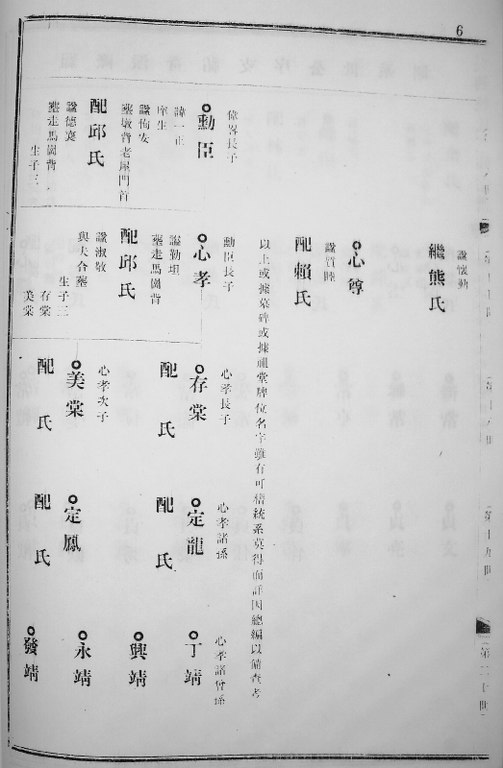 6
諡懷勤
繼熊氏
心尊
諡質睦
配賴氏
以上或據墓碑或據祖堂牌位名字雖有可借統系莫得而詳因總編以備查考
偉畧長子
勳臣
諱一正
庠生
諡侚安
塟墩背老屋門首
配邱氏
諡德襄
塟走馬崗背
生子三
勳臣長子
心孝
諡勤坦
塟走馬崗背
配邱氏
諡淑敬
與夫合塟
生子二
存棠
美棠
心孝長子
存棠
配 氏
心孝次子
美棠
配 氏
心孝諸孫
定龍
配 氏
定鳳
配 氏
心孝諸曾孫
丁靖
興靖
永靖
發靖